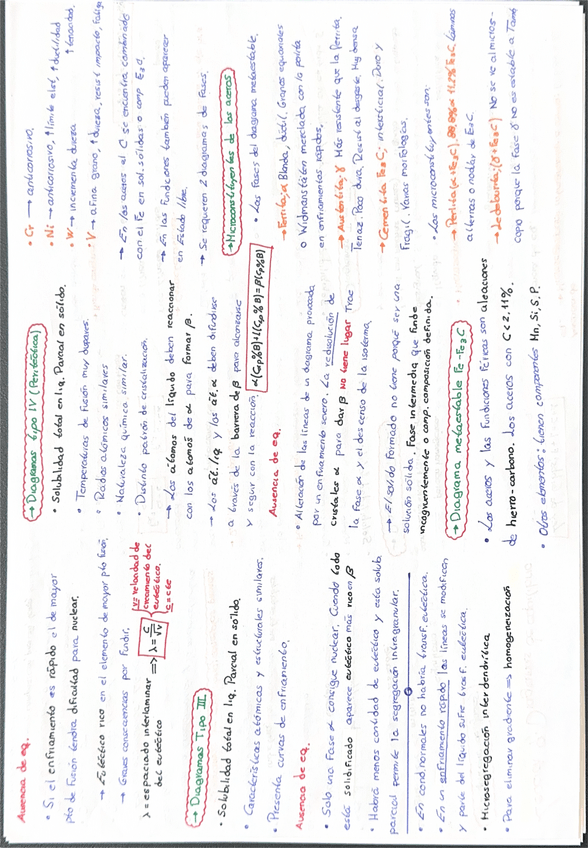 Ausencia de eq.
• Si el enfriamiento es rápido el de mayor
pto de fusión tendrá dificultad para nuclear.
→ Eutéctico rico en el elemento de mayor pto fusión,
→ Graves consecuencias por fundir.
λ = espaciado interlaminar
del eutéctico
⇒ λ = C/√v
v = velocidad de
crecimiento del
eutéctico.
C = cte
→ Diagramas Tipo III.
• Solubilidad total en liq. Parcial en solido.
• Características atómicas y estructurales similares.
• Presenta curvas de enfriamiento.
Ausencia de eq.
• Solo una fase α consigue nuclear. Cuando todo
está solidificado aparece eutéctico más rico en β
• Habrá menos cantidad de eutéctico y esta solub.
parcial permite la segregación intragranular.
• En cond. normales no habría transf. eutéctica.
• En un enfriamiento rápido las líneas se modifican,
y parte del líquido sufre transf. eutéctica.
• Microsegregación interdendrítica
• Para eliminar gradiente ⇒ homogeneización
→ Diagramas tipo IV (Peritéctica)
• Solubilidad total en liq. Parcial en sólido.
• Temperaturas de fusión muy dispares.
• Radios atómicos similares
• Naturaleza química similar.
• Distinto patrón de cristalización.
→ Los átomos del líquido deben reaccionar
con los átomos de α para formar β.
→ Los át. liq y los át. α deben difundirse
a través de la barrera de β para alcanzarse
y seguir con la reacción α(Cp%B)+L(Cp%B)=β(Cp%B)
Ausencia de eq.
• Alteración de las líneas de un diagrama, provocada
por un enfriamiento severo. La redisolución de
cristales α para dar β No tiene lugar Trae
la fase α y el descenso de la isoterma.
→ El sólido formado no tiene porqué ser una
solución sólida, Fase intermedia que funde
incongruentemente o comp. composición definida.
→ Diagrama metaestable Fe-Fe3C
• Los aceros y las fundiciones férreas son aleaciones
de hierro-carbono. Los aceros con C < 2.11%.
• Otros elementos: tienen componentes Mn, Si, S, P.
• Cr → anticorrosivo,
• Ni → anticorrosivo, ↑limite elást, ↑ductilidad
• W → incrementa dureza ↑tenacidad,
• V → afina grano, ↑dureza, resist impacto, fatiga
→ En los aceros el C se encuentra combinado
con el Fe en sol. sólidas o comp. Fe3C.
→ En las fundiciones también pueden aparecer
en Estado libre.
→ Se requieren 2 diagramas de fases.
→ Microconstituyentes de los aceros
• Las fases del diagrama metaestable.
→ Ferrita; α Blanda, dúctil, Granos equiaxiales
o Widmanstätten mezclada con la perlita
en enfriamientos rápidos,
→ Austenita; γ Más resistente que la ferrita,
Tenaz. Poco dura, Resist al desgaste, Muy densa
→ Cementita Fe3C; intersticial. Duro y
Frágil. Varias morfologías.
• Los microconstituyentes son:
→ Perlita (α+Fe3C). 88,8%α 11,2%Fe3C, láminas
alternas o nodular de Fe3C.
→ Ledeburita; (γ+Fe3C) No se ve al micros-
copio porque la fase γ no es estable a Tamb